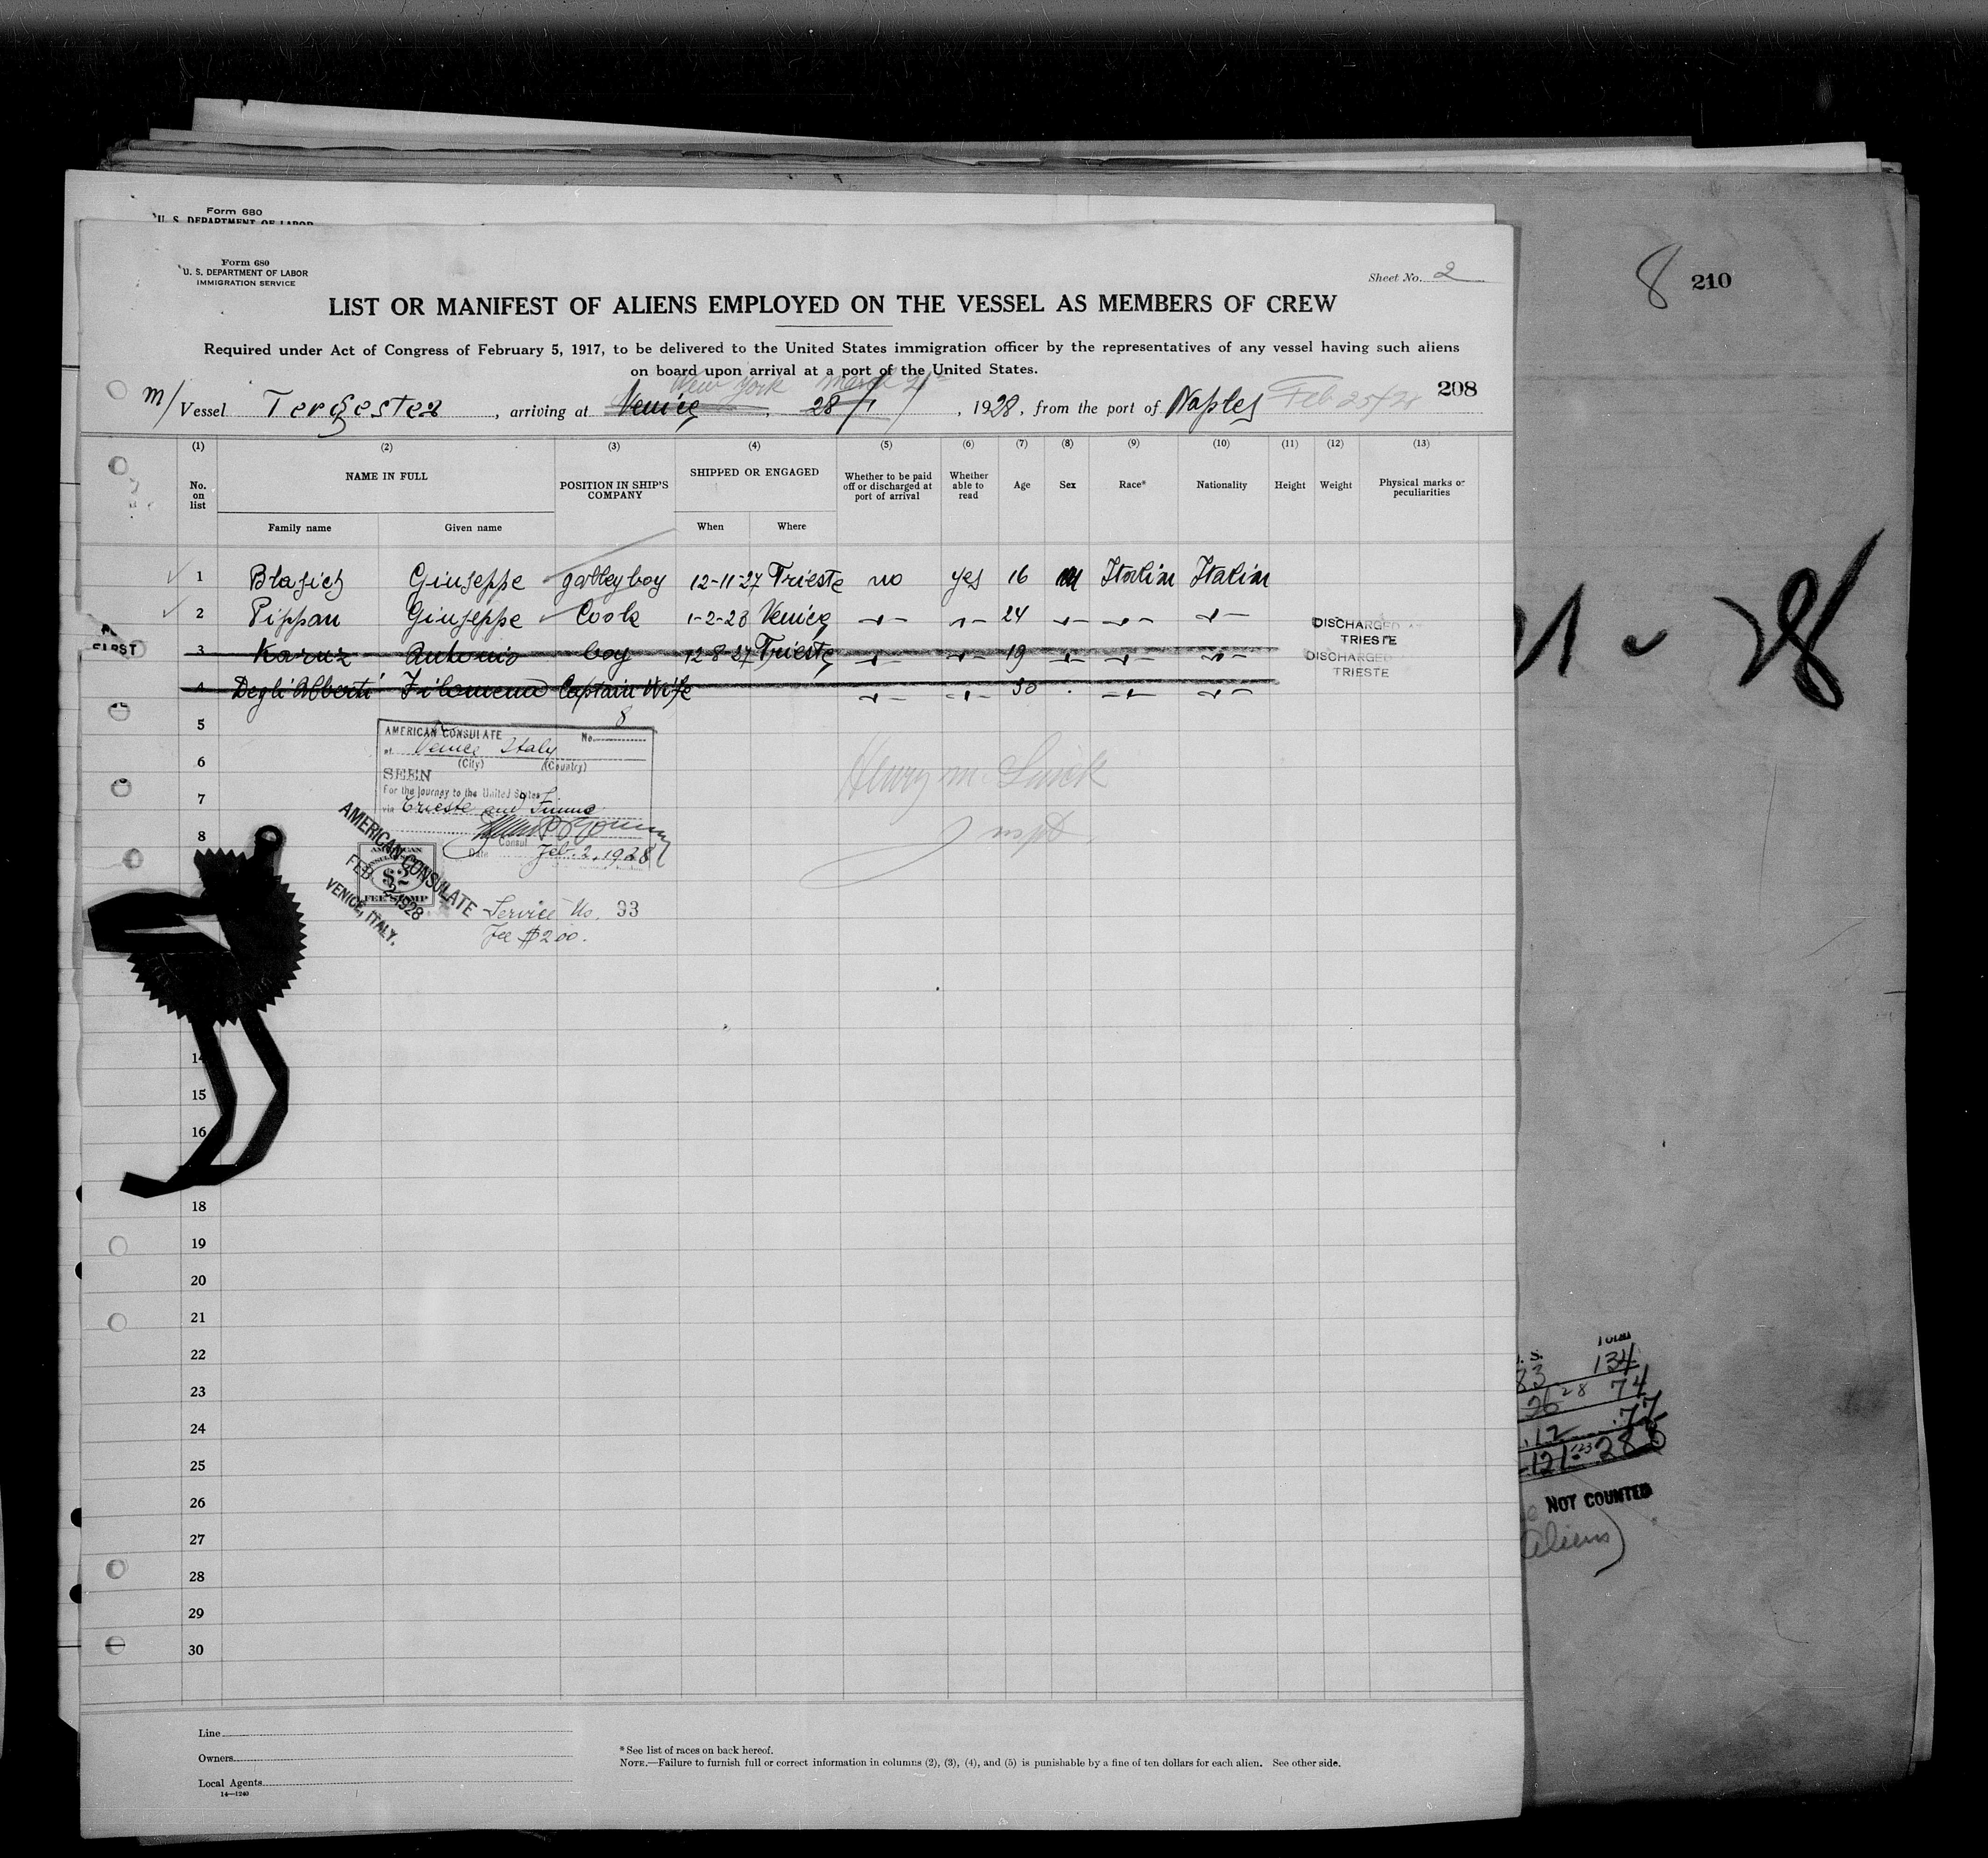 Form 680
U. S. DEPARTMENT OF LABOR
Form 680
U. S. DEPARTMENT OF LABOR
IMMIGRATION SERVICE
Sheet No. 2
8 210
LIST OR MANIFEST OF ALIENS EMPLOYED ON THE VESSEL AS MEMBERS OF CREW
Required under Act of Congress of February 5, 1917, to be delivered to the United States immigration officer by the representatives of any vessel having such aliens
on board upon arrival at a port of the United States.
New York March 21
208
m/ Vessel Tergestea, arriving at Venice, 28/1, 1928, from the port of Naples Feb 25/28
(1) (2) (3) (4) (5) (6) (7) (8) (9) (10) (11) (12) (13)
No. on list NAME IN FULL POSITION IN SHIP'S COMPANY SHIPPED OR ENGAGED Whether to be paid off or discharged at port of arrival Whether able to read Age Sex Race* Nationality Height Weight Physical marks or peculiarities
Family name Given name When Where
1 Blasich Giuseppe galley boy 12-11-27 Trieste no yes 16 m Italian Italian
2 Pippan Giuseppe Cook 1-2-28 Venice -"- -"- 24 -"- -"- -"-
DISCHARGED AT
TRIESTE
FIRST
3 Karuz Antonio boy 12-8-27 Trieste -"- -"- 19 -"- -"- -"-
DISCHARGED
TRIESTE
4 Degli Alberti Filomena Captain Wife -"- -"- 30 -"- -"-
5
6
7
8
14
15
16
18
19
20
21
22
23
24
25
26
27
28
29
30
AMERICAN CONSULATE No. 8
at Venice Italy
(City) (Country)
SEEN
For the journey to the United States
via Trieste and Fiume
Consul
Date Feb. 2, 1928
AMERICAN CONSULATE
FEB 2 1928
VENICE, ITALY.
AMERICAN
$2
FEE STAMP
Service No. 93
Fee $2.00.
Henry M.
Inspt
21 - 28
Total
134
74
77
121 123 285
NOT COUNTED
Aliens)
Line
Owners
Local Agents
14—1240
* See list of races on back hereof.
NOTE.—Failure to furnish full or correct information in columns (2), (3), (4), and (5) is punishable by a fine of ten dollars for each alien. See other side.